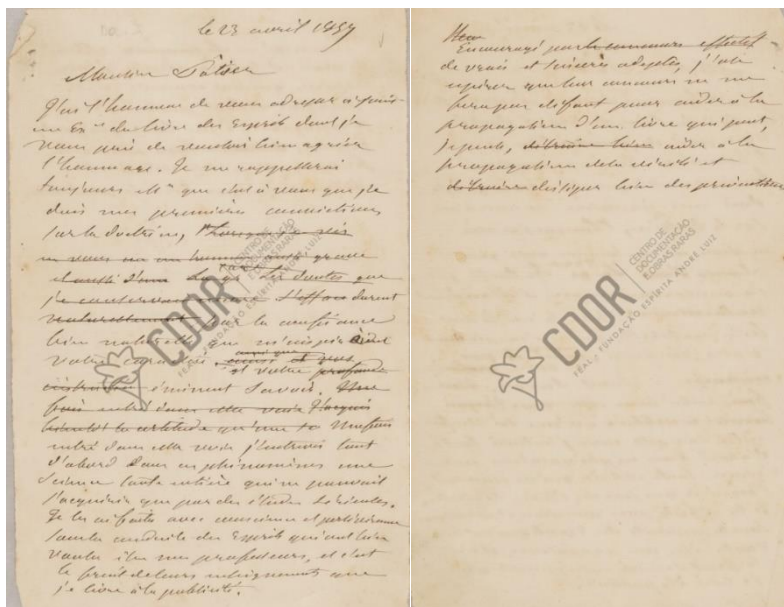 le 23 avril 1857
Monsieur Pâtier
J'ai l'honneur de vous adresser ci-joint
un Ex.re du livre des Esprits dont je
vous prie de vouloir bien agréer
l'hommage. Je me rappellerai
toujours Mr que c'est à vous que je
dois mes premières convictions
sur la doctrine,
grave
Les doutes que
je conservais s'effacèrent
par la confiance
bien naturelle que m'inspirait
votre caractère
et votre profonde
éminent savoir. Une
fois entré dans cette voie j'acquis
bientôt la certitude Une fois
entré dans cette voie j'entrevis tout
d'abord dans ces phénomènes une
science toute entière qui ne pouvait
s'acquérir que par des études sérieuses.
Je les ai faites avec conscience et persévérance
sous la conduite des Esprits qui ont bien
voulu être mes professeurs, et c'est
le fruit de leurs enseignements que
je livre à la publicité.
Encouragé par le concours effectif
de vrais et sincères adeptes, j'ose
espérer que leur concours ne me
fera pas défaut pour aider à la
propagation d'un livre qui peut,
je pense, aider à la
propagation de la vérité et
dissiper bien des préventions
CDOR
CENTRO DE
DOCUMENTAÇÃO
E OBRAS RARAS
FEAL - FUNDAÇÃO ESPÍRITA ANDRÉ LUIZ
CDOR
CENTRO DE
DOCUMENTAÇÃO
E OBRAS RARAS
FEAL - FUNDAÇÃO ESPÍRITA ANDRÉ LUIZ